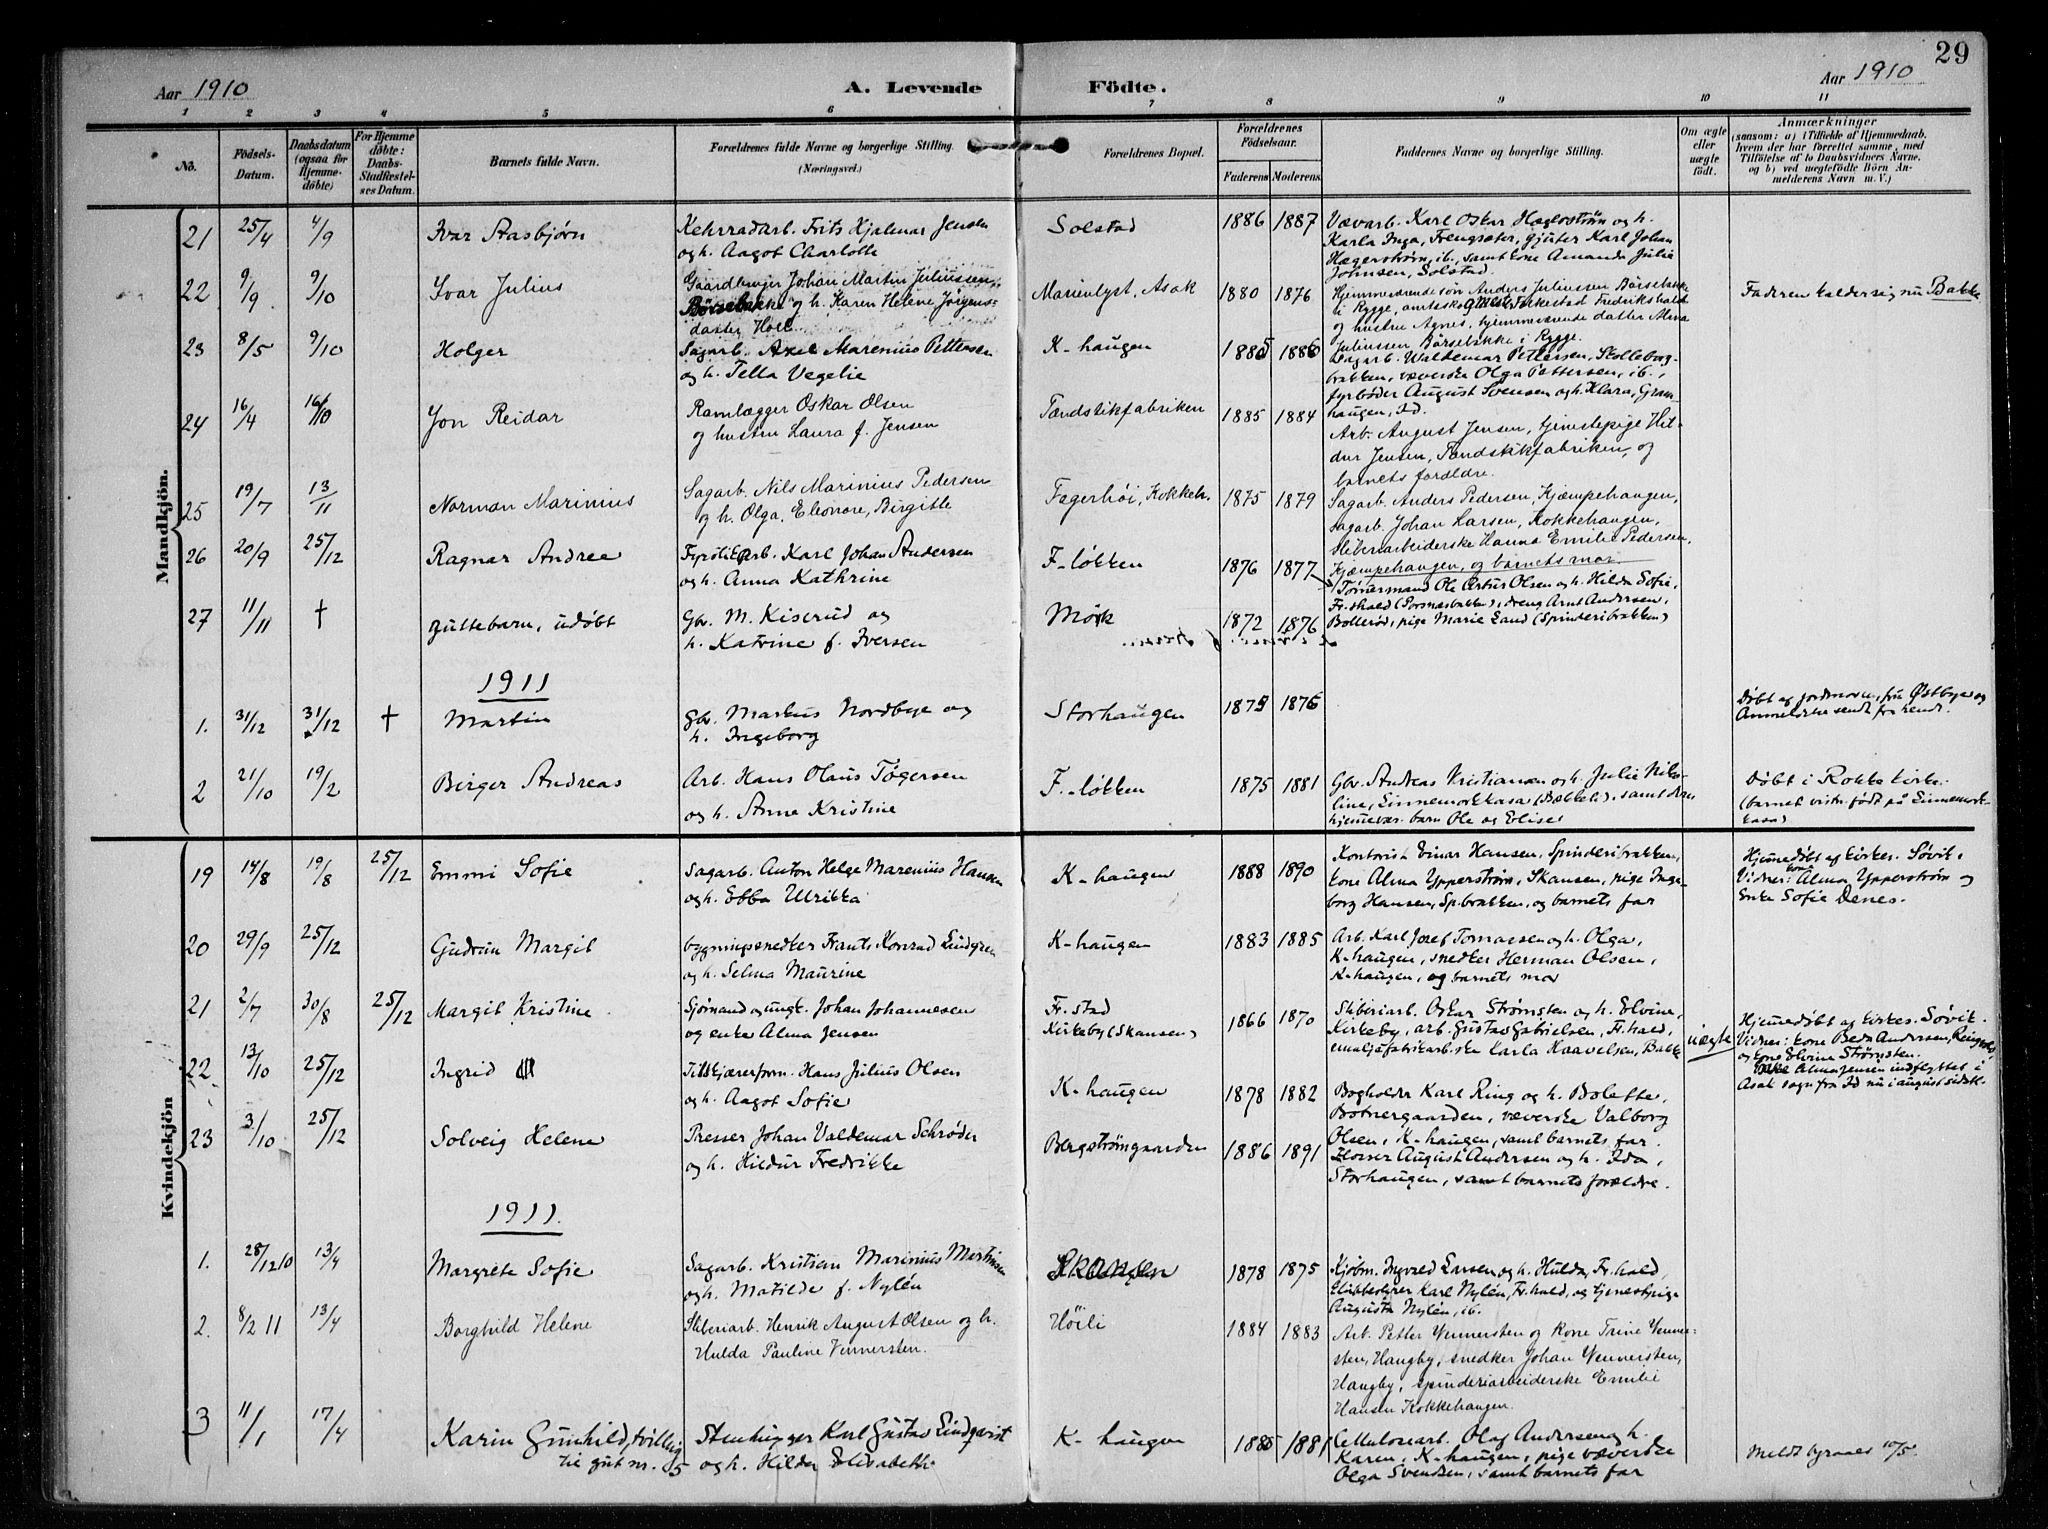 29
Aar 1910
A. Levende
Födte.
Aar 1910
1 2 3 4 5 6 7 8 9 10 11
No.
Födsels-Datum.
Daabsdatum (ogsaa for Hjemme-döbte)
For Hjemme döbte: Daabs-Stadfæstel-ses Datum.
Barnets fulde Navn.
Forældrenes fulde Navne og borgerlige Stilling.
(Næringsvei.)
Forældrenes Bopæl.
Forældrenes Födselsaar.
Faderens Moderens
Faddernes Navne og borgerlige Stilling.
Om ægte eller uægte födt.
Anmærkninger
(saasom: a) i Tilfælde af Hjemmedaab,
hvem der har forrettet samme, med
Tilföielse af to Daabsvidners Navne,
og b) ved uægtefödte Börn An-
melderens Navn m. V.)
Mandkjön.
21 25/4 4/9 Ivar Aasbjørn
Kehrradarb. Frits Hjalmar Jensen
og h. Aagot Charlotte
Solstad 1886 1887
Vævarb. Karl Oskar Hægerstrøm og h.
Karla Inga, Trengsæter, gjuter Karl Johan
Hægerstrøm, ib., samt kone Amanda Julie
Johnsen, Solstad.
22 9/9 9/10 Ivar Julius
Gaardbruger Johan Martin Juliussen
Børsebakke og h. Karen Helene Jørgens-
datter Hoel
Marienlyst, Asak 1880 1876
Hjemmeværende søn Anders Juliussen Børsebakke
i Rygge, Fredrikshald
og hustru Agnes, hjemmeværende datter Mina
Juliussen Børsebakke i Rygge.
Faderen kalder sig nu Bakke
23 8/5 9/10 Holger
Sagarb. Axel Marenius Pettersen
og h. Tella Vegelie
K-haugen 1885 1886
Sagarb. Waldemar Pettersen, Skolleborg-
brakken, væverske Olga Pettersen, ib.,
fyrbøder August Svensen og h. Klara, Gran-
haugen, Id.
24 16/4 16/10 Jon Reidar
Ramlægger Oskar Olsen
og hustru Laura f. Jensen
Tændstikfabriken 1885 1884
Arb. August Jensen, tjenestepige Hil-
dur Jensen, Tændstikfabriken, og
barnets forældre.
25 19/7 13/11 Norman Marinius
Sagarb. Nils Marinius Pedersen
og h. Olga, Eleonore, Birgitte
Fagerhøi, Kokkeh. 1875 1879
Sagarb. Anders Pedersen, Kjæmpehaugen,
sagarb. Johan Larsen, Kokkehaugen,
sliberiarbeiderske Hanna Emilie Pedersen,
Kjæmpehaugen, og barnets mor
26 20/9 25/12 Ragnar Andree
Fyrstikarb. Karl Johan Andersen
og h. Anna Kathrine
F-løkken 1876 1877
Tømermand Ole Artur Olsen og h. Hilda Sofie,
Fr.shald, dreng Arnt Andersen,
Bollerød, pige Marie Sand (Spinderibrakken)
27 11/11 † guttebarn, udøbt
Gbr. M. Kiserud og
h. Katrine f. Iversen
Mørk 1872 1876
1911
1. 31/12 31/12 † Martin
Gbr. Markus Nordbye og
h. Ingeborg
Storhaugen 1875 1876
Døbt af jordmoren, fru Østbye og
Anmeldelse sendt fra hende.
2 21/10 19/2 Birger Andreas
Arb. Hans Olaus Tøgersen
og h. Anne Kristine
F.-løkken 1875 1881
Gbr. Andreas Kristiansen og h. Julie Niko-
line, Linnemorkkasa, samt deres
hjemmevær. barn Ole og Elise
Døbt i Rokke kirke.
(barnet vistn. født på Linnemork-
kasa)
Kvindekjön
19 14/8 19/8 25/12 Emmi Sofie
Sagarb. Anton Helge Marenius Hansen
og h. Ebba Ulrikka
K-haugen 1888 1890
Kontorist Einar Hansen, Spinderibrakken,
kone Alma Ypperstrøm, Skansen, pige Inge-
borg Hansen, Sp.brakken, og barnets far
Hjemmedøbt af kirkes. Søvik.
Vidner: kone Alma Ypperstrøm og
Enke Sofie Denes.
20 29/9 25/12 Gudrun Margit
bygningssnedker Frants Konrad Lindgren
og h. Selma Maurine
K-haugen 1883 1885
Arb. Karl Josef Tomassen og h. Olga,
K-haugen, snedker Herman Olsen,
K-haugen, og barnets mor
21 2/7 30/8 25/12 Margit Kristine
Sjømand og ungk. Johan Johannesen
og enke Alma Jensen
Fr.stad
Kirkeby (Skansen) 1866 1870
Sliberiarb. Oskar Strømsten og h. Elvine,
Kirkeby, arb. Gustav Gabrielsen, Fr.hald,
emaljefabrikarb.ske Karla Haavelsen, Bakke
uægte
Hjemmedøbt af kirkes. Søvik.
Vidner: kone Beda Andersen,
og kone Elvine Strømsten.
Enke Alma Jensen indflyttet i
Asak sogn fra Id nu i august sidstl.
22 13/10 25/12 Ingrid
Tilskjærerform. Hans Julius Olsen
og h. Aagot Sofie
K-haugen 1878 1882
Bogholder Karl Ring og h. Bolette,
Botnergaarden, væverske Valborg
Olsen, K-haugen, samt barnets far.
23 3/10 25/12 Solveig Helene
Presser Johan Valdemar Schrøder
og h. Hildur Fredrikke
Bergstrømgaarden 1886 1891
August Andersen og h. Ida,
Storhaugen, samt barnets forældre.
1911.
1. 28/12 10 13/4 Margrete Sofie
Sagarb. Kristian Marinius Martinsen
og h. Matilde f. Nylén
Skansen 1878 1875
Kjøbm. Ingvald Larsen og h. Hulda, Fr.hald,
Karl Nylén, Fr.hald, og tjenestpige
Augusta Nylén, ib.
2. 8/2 11 13/4 Borghild Helene
Sliberiarb. Henrik August Olsen og h.
Hulda Pauline Vennersten.
Höili 1884 1883
Arb. Petter Vennersten og kone Trine Venner-
sten, Haugby, snedker Johan Vennersten,
Haugby, spinderiarbeiderske Emilie
Hansen Kokkehaugen.
3 11/1 17/4 Karin Gunhild, tvilling
til gut nr. 5
Stenhugger Karl Gustav Lindqvist
og h. Hilda Elisabeth
K-haugen 1885 1881
Cellulosearb. Olaf Andersen og h.
Karen, K-haugen, pige væverske
Olga Svendsen, samt barnets far
Meldt byraaet 10/5.